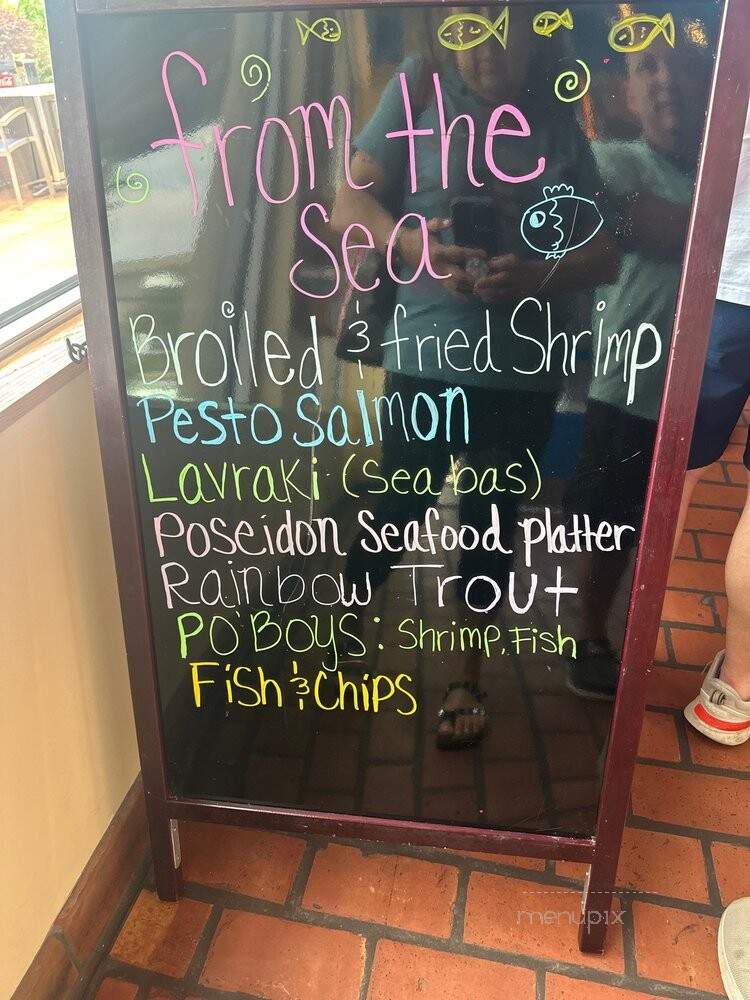 from the
sea
Broiled & fried Shrimp
Pesto Salmon
Lavraki (Sea bas)
Poseidon Seafood platter
Rainbow Trout
PO'BOYS: Shrimp, Fish
Fish & Chips
menupix